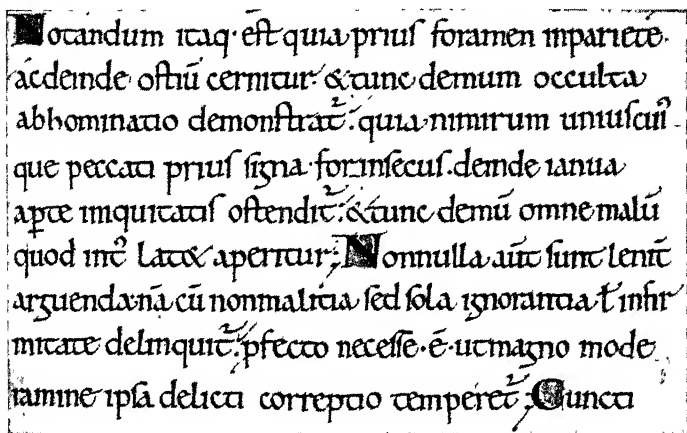 Notandum itaq· est quia prius foramen inpariete·
acdeinde ostiū cernitur· & tunc demum occulta
abhominatio demonstrat᷑· quia nimirum uniuscui᷒
que peccati prius signa forinsecus. deinde ianua
apte iniquitatis ostendit᷑· & tunc demū omne malū
quod int᷒ lat& aperitur; Nonnulla aūt sunt lenit̄
arguenda nā cū nonmalitia sed sola ignorantia ł infir
mitate delinquit᷑· pfecto necesse· ē· utmagno mode
ramine ipsa delicti correptio temperet᷑; Cuncti